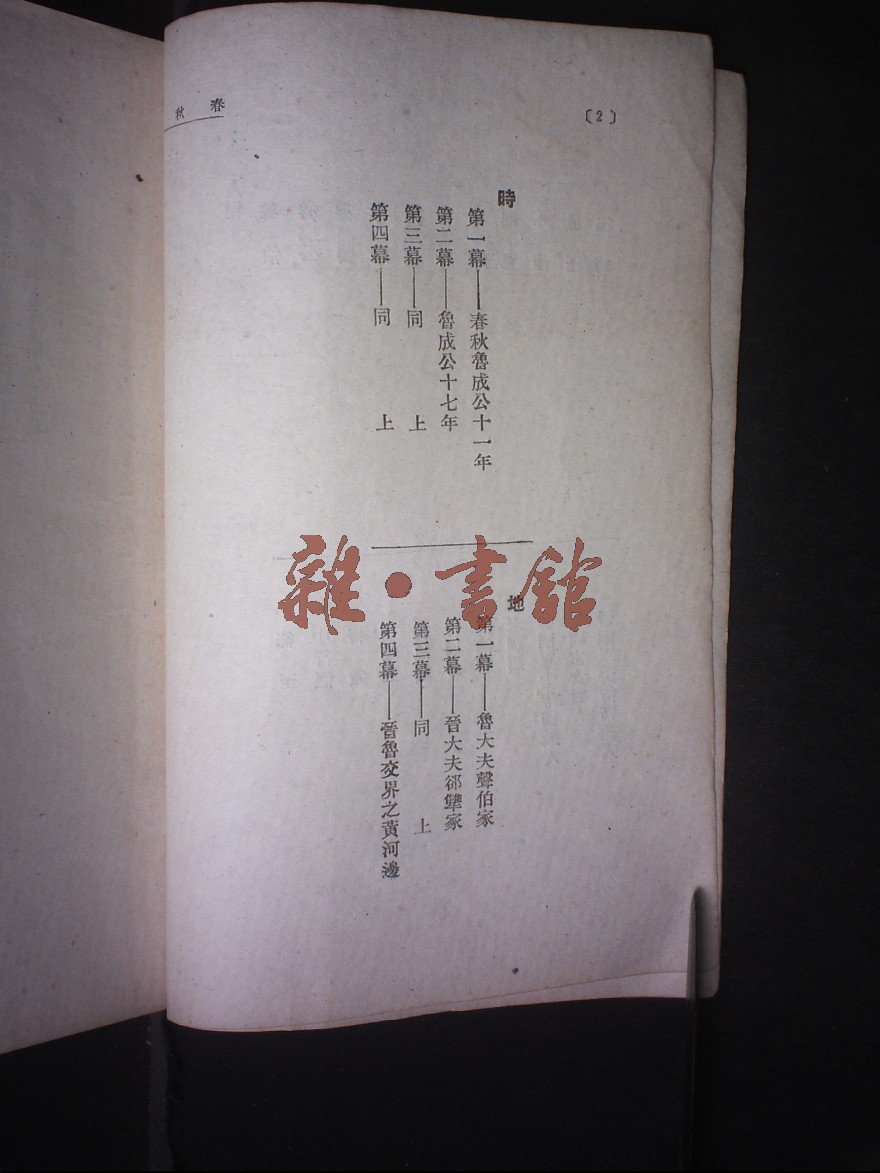 春秋
〔2〕
時
第一幕——春秋魯成公十一年
第二幕——魯成公十七年
第三幕——同　上
第四幕——同　上
地
第一幕——魯大夫聲伯家
第二幕——晉大夫郤犨家
第三幕——同　上
第四幕——晉魯交界之黃河邊
雜·書館